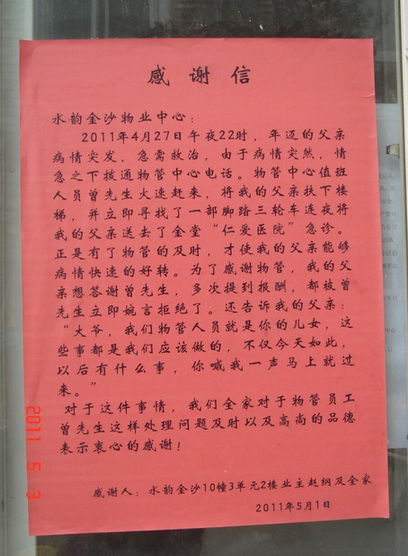 感谢信
水韵金沙物业中心：
2011年4月27日午夜22时，年迈的父亲
病情突发，急需救治，由于病情突然，情
急之下拨通物管中心电话。物管中心值班
人员曾先生火速赶来，将我的父亲扶下楼
梯，并立即寻找了一部脚踏三轮车连夜将
我的父亲送去了金堂“仁爱医院”急诊。
正是有了物管的及时，才使我的父亲能够
病情快速的好转。为了感谢物管，我的父
亲想答谢曾先生，多次提到报酬，都被曾
先生立即婉言拒绝了。还告诉我的父亲：
“大爷，我们物管人员就是你的儿女，这
些事都是我们应该做的，不仅今天如此，
以后有什么事，你喊我一声马上就过
来。”
对于这件事情，我们全家对于物管员工
曾先生这样处理问题及时以及高尚的品德
表示衷心的感谢！
感谢人：水韵金沙10幢3单元2楼业主赵纲及全家
2011年5月1日
2011 5 3